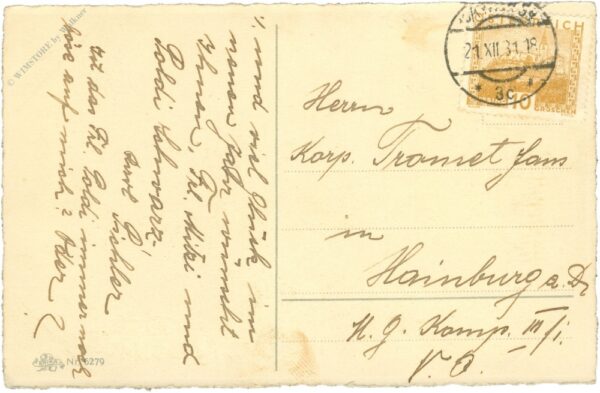 © WIMSTORE by Wallner
% und viel Glück im
neuen Jahr wünscht
Ihnen, Frl. Mitzi und
Poldi Schwarz.
Pichler
Ist das Frl. Poldi immer noch
böse auf mich? Oder?
Nr. 6279
21.XII.31.18
* 3c *
ICH
10
GROSCHEN
Herrn
Korp. Tromet Hans
in
Hainburg a. D.
K. G. Komp. III/1.
N. Ö.